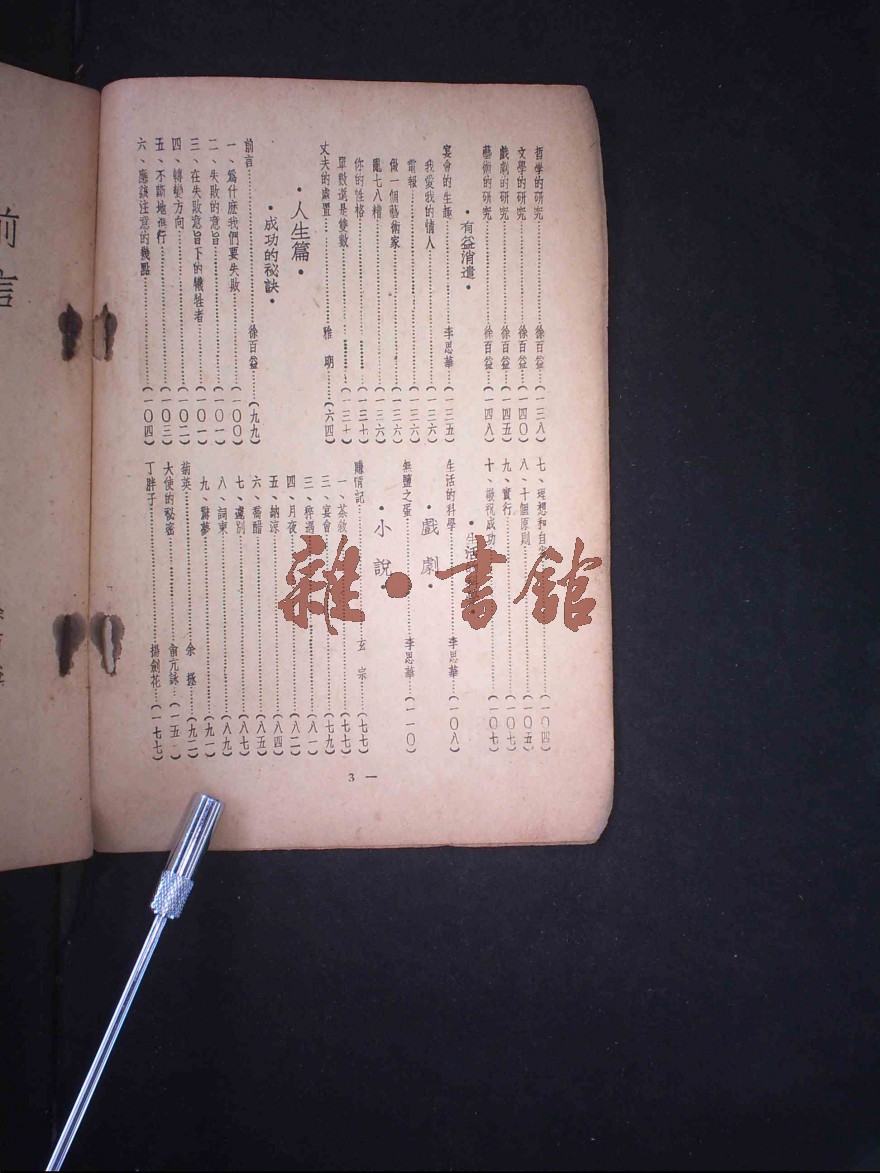 哲學的研究……徐百益…(一三八)
文學的研究……徐百益…(一四〇)
戲劇的研究……徐百益…(一四五)
藝術的研究……徐百益…(一四八)
•有益消遣•
宴會的生趣……李思華…(一三五)
我愛我的情人……(一三六)
電報……(一三六)
做一個藝術家……(一三六)
亂七八糟……(一三六)
你的性格……(一三七)
單數還是雙數……(一三七)
丈夫的處置……雅 期…(六四)
•人生篇•
•成功的秘訣•
前言……徐百益…(九九)
一、爲什麽我們要失敗……(一〇〇)
二、失敗的意旨……(一〇一)
三、在失敗意旨下的犧牲者……(一〇一)
四、轉變方向……(一〇二)
五、不斷地進行……(一〇三)
六、應該注意的幾點……(一〇四)
七、理想和自……(一〇四)
八、十個原則……(一〇五)
九、實行……(一〇七)
十、敬祝成功……(一〇七)
•生活
生活的科學……李思華…(一〇八)
•戲 劇•
無鹽之蛋……李思華…(一一〇)
•小 說•
賺情記……玄 宗…(七七)
一、茶敘……(七七)
二、宴會……(七九)
三、稡遇……(八一)
四、月夜……(八二)
五、納涼……(八四)
六、喬醋……(八五)
七、遽別……(八七)
八、詞柬……(八九)
九、驚夢……(九一)
菊英……余 拯…(九二)
大使的秘密……俞亢詠…(一五
丁胖子……楊劍花…(一七七)
3 —
前言
雜•書館